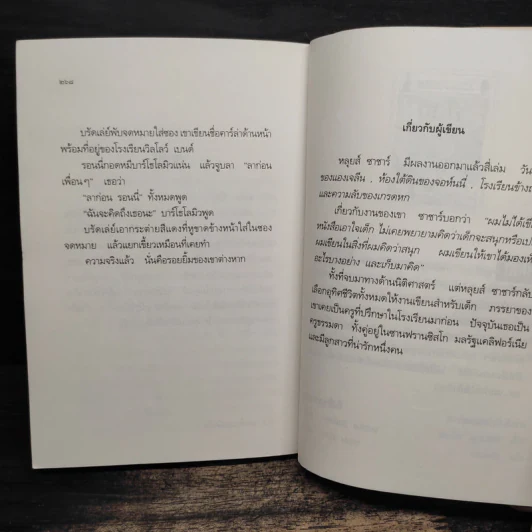 ๒๖๘
บรัดเล่ย์พับจดหมายใส่ซอง เขาเขียนชื่อคาร์ล่าด้านหน้า
พร้อมที่อยู่ของโรงเรียนวิลโลว์ เบนด์
รอนนี่กอดหมีบาร์โธโลมิวแน่น แล้วจูบลา "ลาก่อน
เพื่อนๆ" เธอว่า
"ลาก่อน รอนนี่" ทั้งหมดพูด
"ฉันจะคิดถึงเธอนะ" บาร์โธโลมิวพูด
บรัดเล่ย์เอากระต่ายสีแดงที่หูขาดข้างหน้าใส่ในซอง
จดหมาย แล้วแยกเขี้ยวเหมือนที่เคยทำ
ความจริงแล้ว นั่นคือรอยยิ้มของเขาต่างหาก
เกี่ยวกับผู้เขียน
หลุยส์ ซาชาร์ มีผลงานออกมาแล้วสี่เล่ม วัน
ของแองเจลีน, ห้องใต้ดินของจอห์นนี่, โรงเรียนข้าง
และความลับของเกรดหก
เกี่ยวกับงานของเขา ซาชาร์บอกว่า "ผมไม่ได้เขี
หนังสือเอาใจเด็ก ไม่เคยพยายามคิดว่าเด็กจะสนุกหรือเป
ผมเขียนในสิ่งที่ผมคิดว่าสนุก ผมเขียนให้เขาได้มองเห็
อะไรบางอย่าง และเก็บมาคิด"
ทั้งที่จบมาทางด้านนิติศาสตร์ แต่หลุยส์ ซาชาร์กลับ
เลือกอุทิศชีวิตทั้งหมดให้งานเขียนสำหรับเด็ก ภรรยาของ
เขาเคยเป็นครูที่ปรึกษาในโรงเรียนมาก่อน ปัจจุบันเธอเป็น
ครูธรรมดา ทั้งคู่อยู่ในซานฟรานซิสโก มลรัฐแคลิฟอร์เนีย
และมีลูกสาวที่น่ารักหนึ่งคน